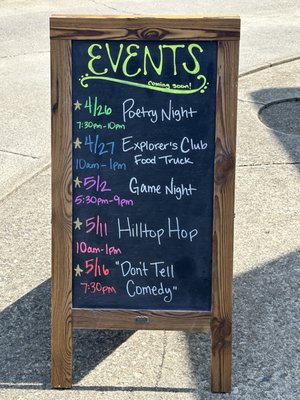 EVENTS
coming soon!
4/26 Poetry Night
7:30pm-10pm
4/27 Explorer's Club
10am-1pm Food Truck
5/2 Game Night
5:30pm-9pm
5/11 Hilltop Hop
10am-1pm
5/16 "Don't Tell
7:30pm Comedy"